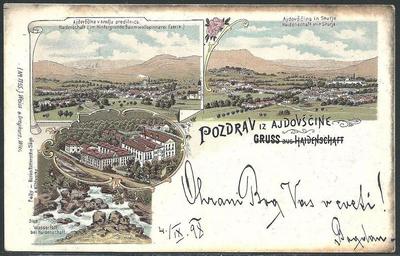 Ajdovščina v ozadju predilnica.
Haidenschaft (im Hintergrunde Baumwollspinnerei Fabrik)
Ajdovščina in Šturje
Haidenschaft mit Sturja
POZDRAV IZ AJDOVŠČINE
GRUSS AUS HAIDENSCHAFT
Wasserfall
bei Haidenschaft
Ohrani Bog Vas v cveti!
4/IX. 98
Bogdan